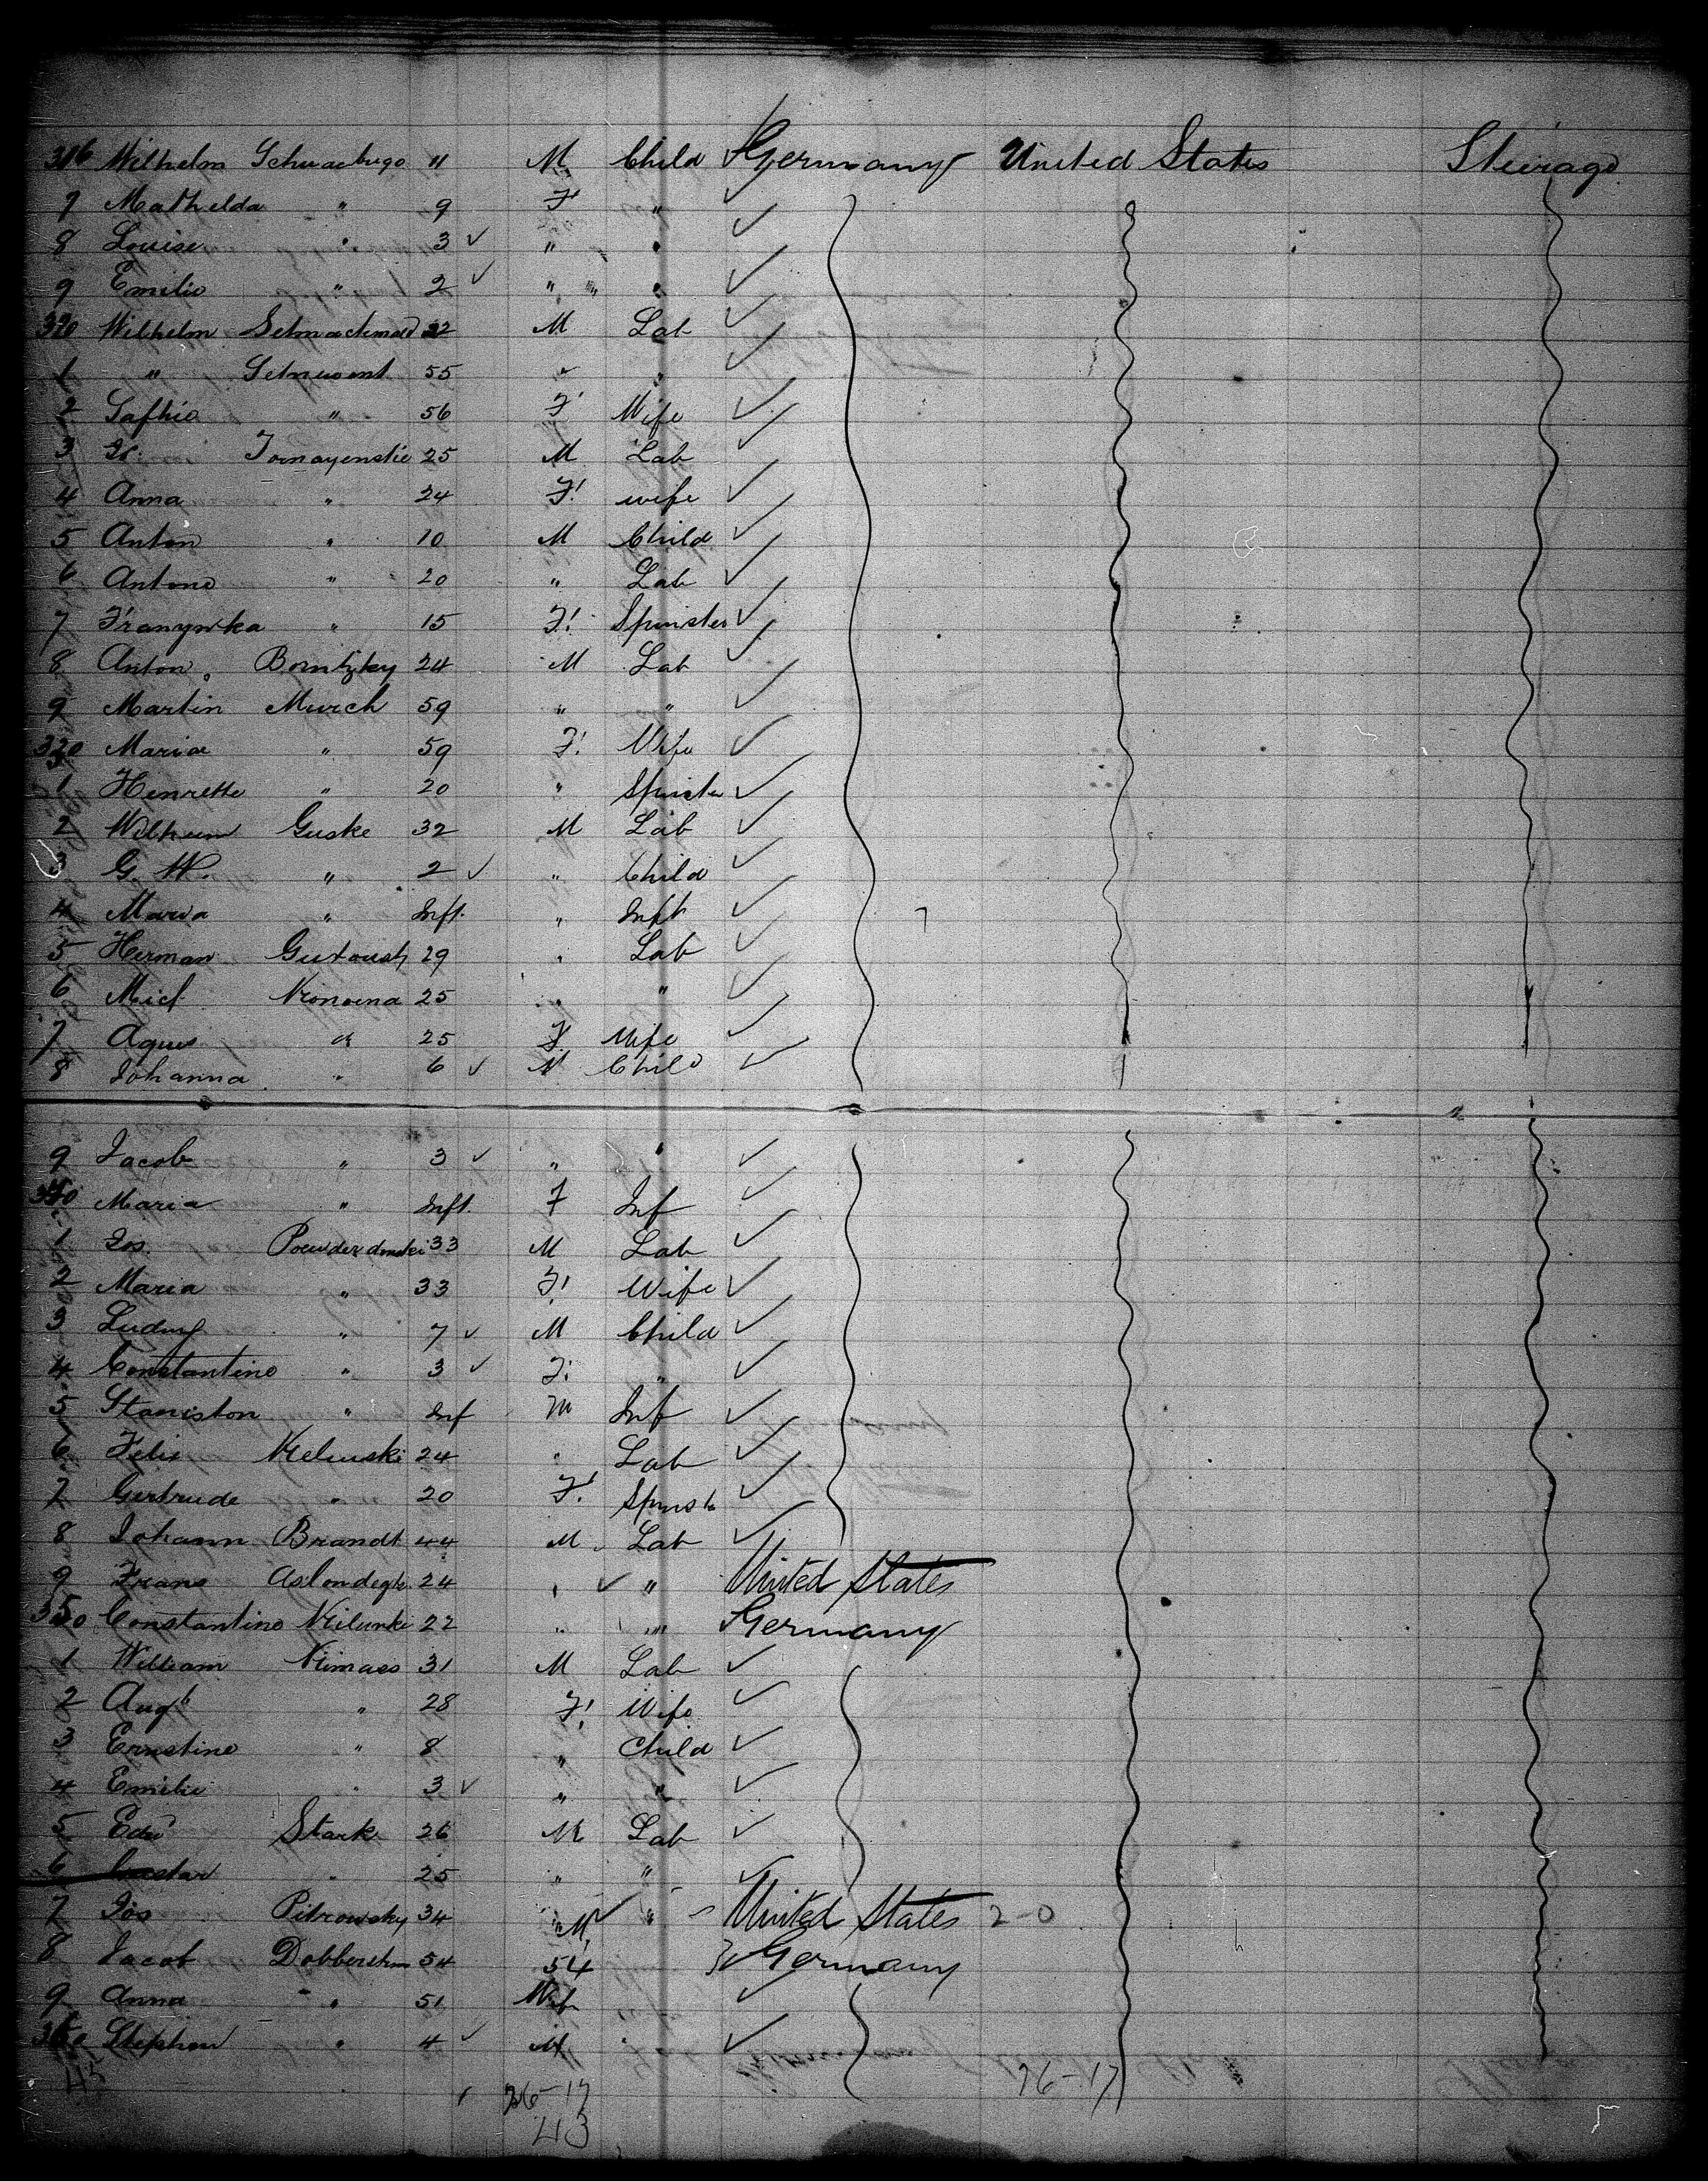 316 Wilhelm Schwaebugo 11 M Child Germany United States Steerage
7 Mathelda " 9 F "
8 Louise " 3 " "
9 Emilie " 2 " "
320 Wilhelm 22 M Lab
1 " 55 " "
2 Safhia " 56 F Wife
3 25 M Lab
4 Anna " 24 F. wife
5 Anton " 10 M Child
6 Antone " 20 " Lab
7 Franynka " 15 F. Spinster
8 Anton Borntzky 24 M Lab
9 Martin Murch 59 " "
330 Maria " 59 F. Wife
1 Henrette " 20 " Spinster
2 Wilhem Guske 32 M Lab
3 G. W. " 2 " Child
4 Maria " Inft. " Inft
5 Herman 29 " Lab
6 25 " "
7 Agnes " 25 F. Wife
8 Johanna " 6 M Child
9 Jacob " 3 " "
340 Maria " Inft. F Inf
1 Jos. 33 M Lab
2 Maria " 33 F. Wife
3 Ludwig " 7 M Child
4 Constantine " 3 F. "
5 Staniston " Inf M Inf
6 Felix 24 " Lab
7 Gertrude " 20 F. Spinst
8 Johann Brandt 44 M. Lab
9 Frans 24 " " United States
350 Constantine 22 " " Germany
1 William 31 M Lab
2 Augt " 28 F. Wife
3 Ernstine " 8 " Child
4 Emilie " 3 " "
5 Edw Stark 26 M Lab
6 " 25 " "
7 Jos Pitrowsky 34 " M " United States 2-0
8 Jacob 54 54 Germany
9 Anna " 51 Wife
360 Stephen " 4 M
45
26-17 76-17
43